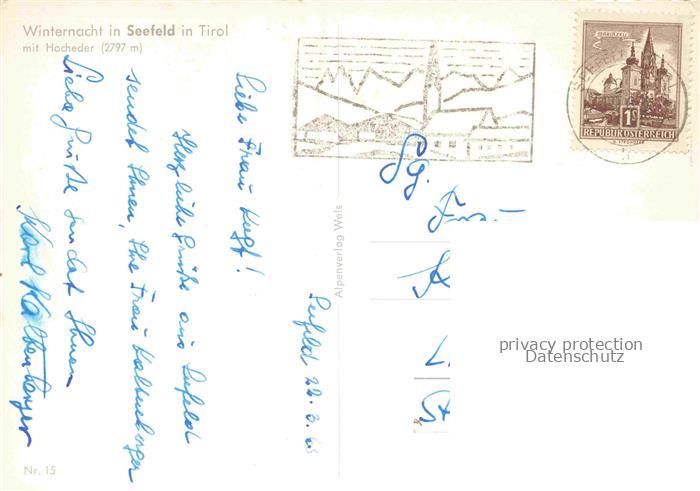 Winternacht in Seefeld in Tirol
mit Hocheder (2797 m)
Seefeld 22.3.
Liebe Frau
Herzliche Grüße aus Seefeld
sendet Ihnen, Ihre Frau Kaltenberger
Liebe Grüße sendet Ihnen
Karl Kaltenberger
Nr. 15
Alpenverlag Wels
MARIAZELL
1S
REPUBLIK ÖSTERREICH
Frau
privacy protection
Datenschutz